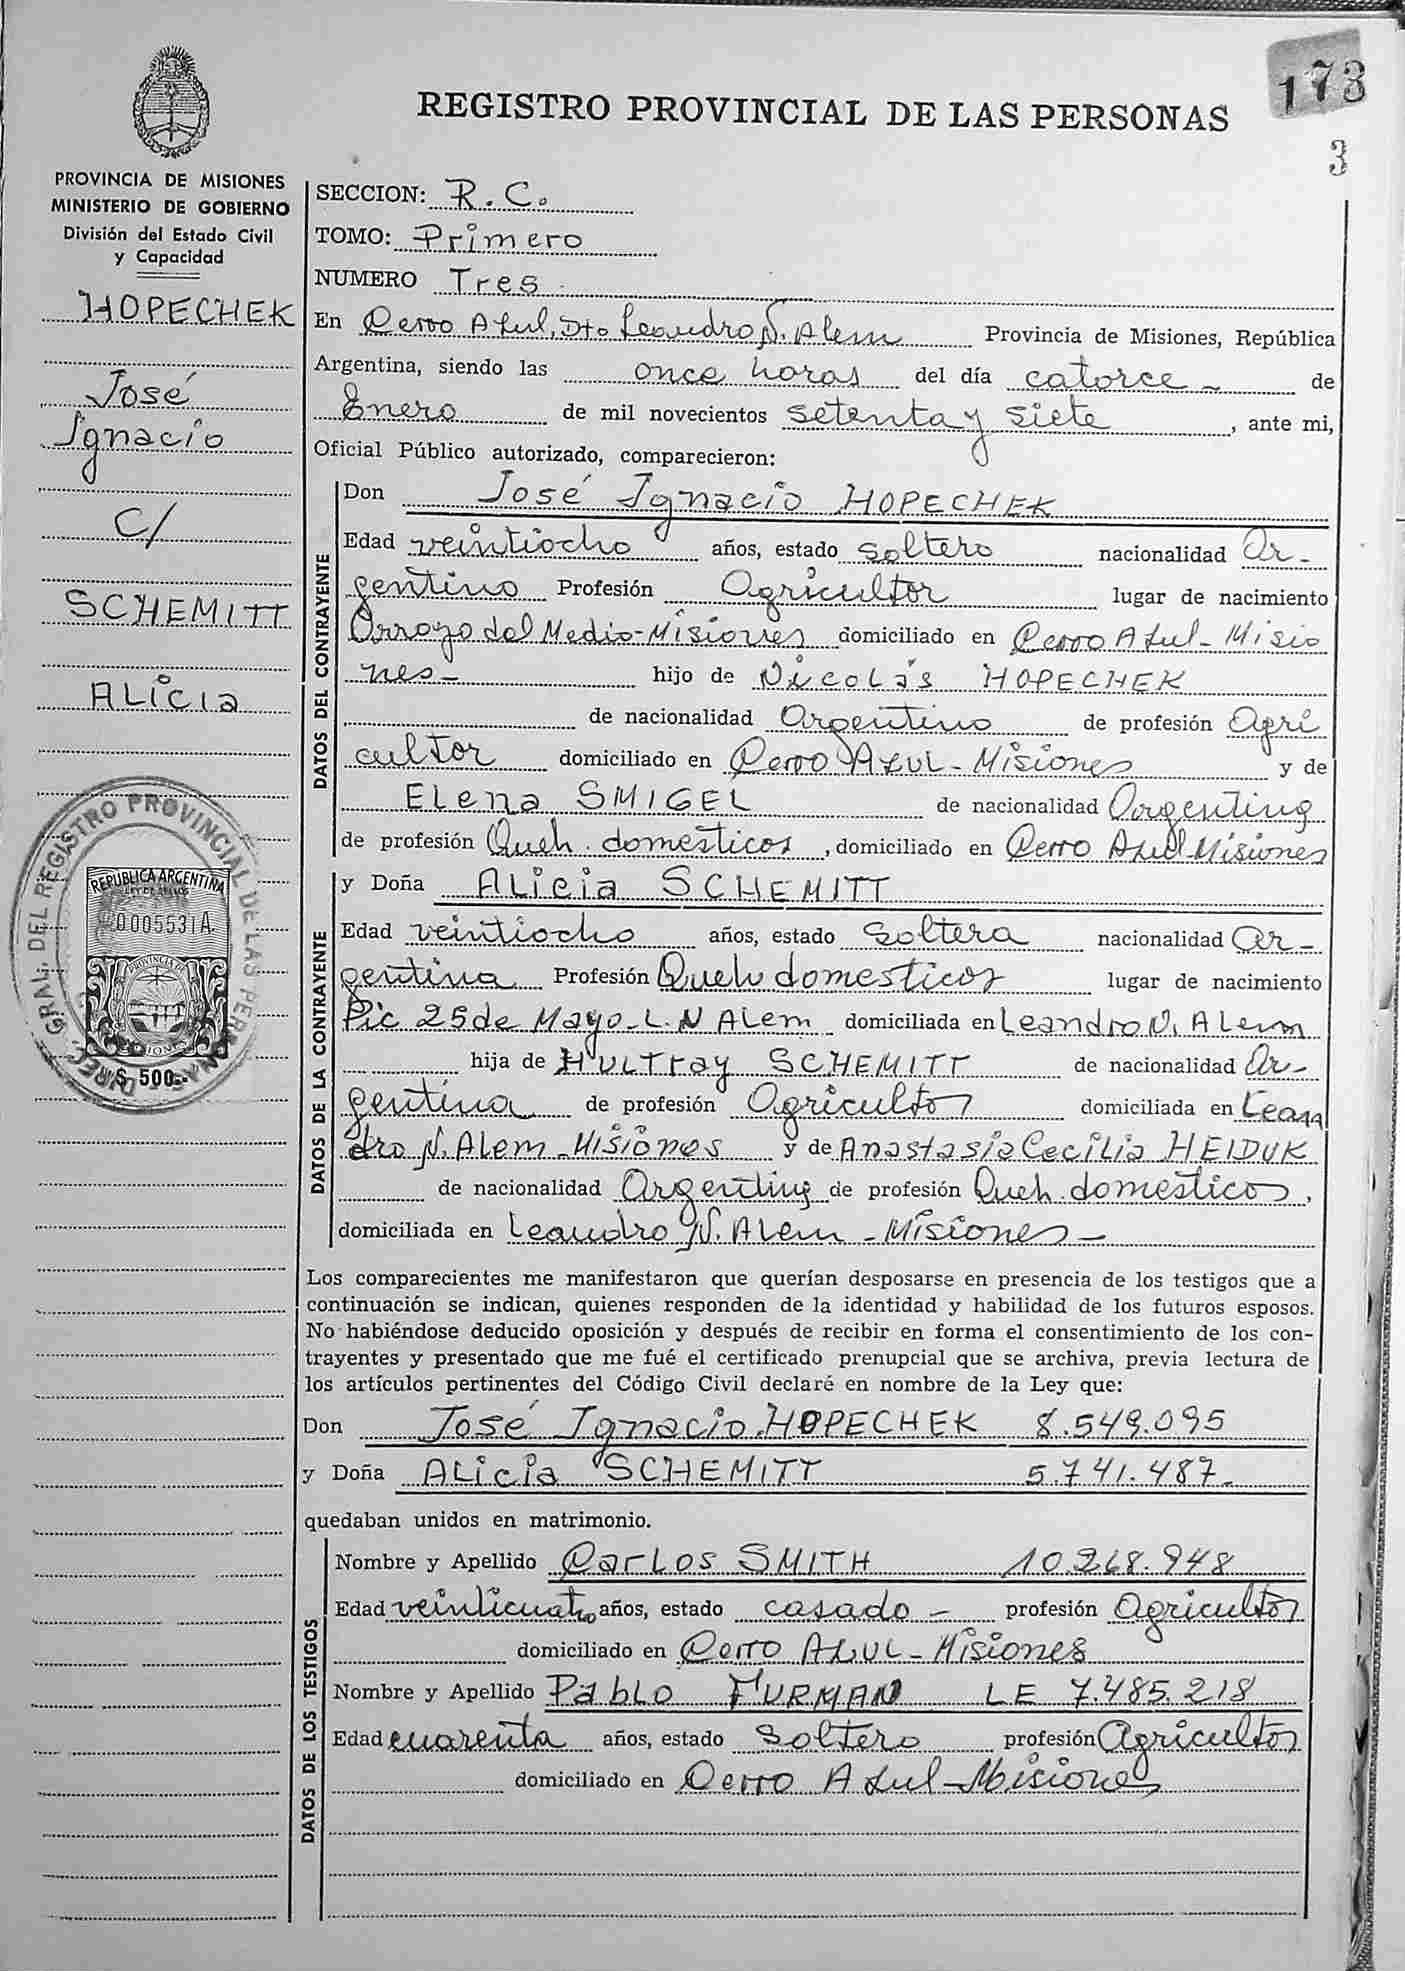 173
REGISTRO PROVINCIAL DE LAS PERSONAS
3
PROVINCIA DE MISIONES
MINISTERIO DE GOBIERNO
División del Estado Civil
y Capacidad
HOPECHEK
José
Ignacio
C/
SCHEMITT
ALicia
GRAL. DEL REGISTRO PROVINCIAL DE LAS PERSONAS
REPUBLICA ARGENTINA
0005531A
PROVINCIA DE
MISIONES
$ 500.-
SECCION: R.C.
TOMO: Primero
NUMERO Tres
En Cerro Azul, Dto Leandro N. Alem Provincia de Misiones, República
Argentina, siendo las once horas del día catorce - de
Enero de mil novecientos setenta y siete, ante mi,
Oficial Público autorizado, comparecieron:
DATOS DEL CONTRAYENTE
Don José Ignacio HOPECHEK
Edad veintiocho años, estado soltero nacionalidad Ar-
gentino Profesión Agricultor lugar de nacimiento
Arroyo del Medio-Misiones domiciliado en Cerro Azul - Misio
nes - hijo de Nicolás HOPECHEK
de nacionalidad Argentino de profesión Agri
cultor domiciliado en Cerro Azul - Misiones y de
Elena SMIGEL de nacionalidad Argentina
de profesión Queh. domesticos, domiciliado en Cerro Azul Misiones
DATOS DE LA CONTRAYENTE
y Doña ALicia SCHEMITT
Edad veintiocho años, estado soltera nacionalidad Ar-
gentina Profesión Queh domesticos lugar de nacimiento
Pic 25 de Mayo - L. N Alem domiciliada en Leandro N. Alem
hija de SCHEMITT de nacionalidad Ar-
gentina de profesión Agricultor domiciliada en Lean
dro N. Alem - Misiones y de Anastasia Cecilia HEIDUK
de nacionalidad Argentina de profesión Queh. domesticos,
domiciliada en Leandro N. Alem - Misiones -
Los comparecientes me manifestaron que querían desposarse en presencia de los testigos que a
continuación se indican, quienes responden de la identidad y habilidad de los futuros esposos.
No habiéndose deducido oposición y después de recibir en forma el consentimiento de los con-
trayentes y presentado que me fué el certificado prenupcial que se archiva, previa lectura de
los artículos pertinentes del Código Civil declaré en nombre de la Ley que:
Don José Ignacio HOPECHEK 8.549.095
y Doña ALicia SCHEMITT 5.741.487-
quedaban unidos en matrimonio.
DATOS DE LOS TESTIGOS
Nombre y Apellido Carlos SMITH 10.268.948
Edad veinticuatro años, estado casado - profesión Agricultor
domiciliado en Cerro Azul - Misiones
Nombre y Apellido Pablo FURMAN LE 7.485.218
Edad cuarenta años, estado soltero profesión Agricultor
domiciliado en Cerro Azul - Misiones